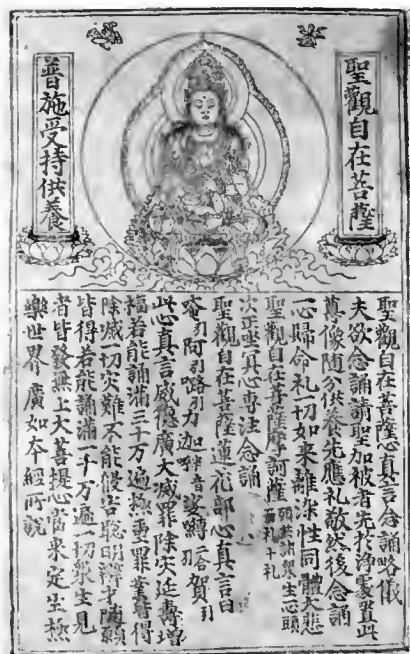 聖觀自在菩薩
普施受持供養
聖觀自在菩薩心真言念誦略儀
夫欲念誦請聖加被者先於淨處置此
尊像隨分供養先應礼敬然後念誦
一心歸命礼一切如來離染性同體大悲
聖觀自在菩薩摩訶薩 願共諸衆生
次正坐冥心專注念誦
聖觀自在菩薩蓮花部心真言曰
唵引阿引嚕引力迦 娑縛二合賀引
此心真言威德廣大滅罪除灾延壽增
福若能誦滿三十万遍極重罪業皆得
除滅一切灾難不能侵害聰明辯才隨願
皆得若能誦滿一千万遍一切衆生見
者皆發無上大菩提心當來定生極
樂世界廣如本經所說